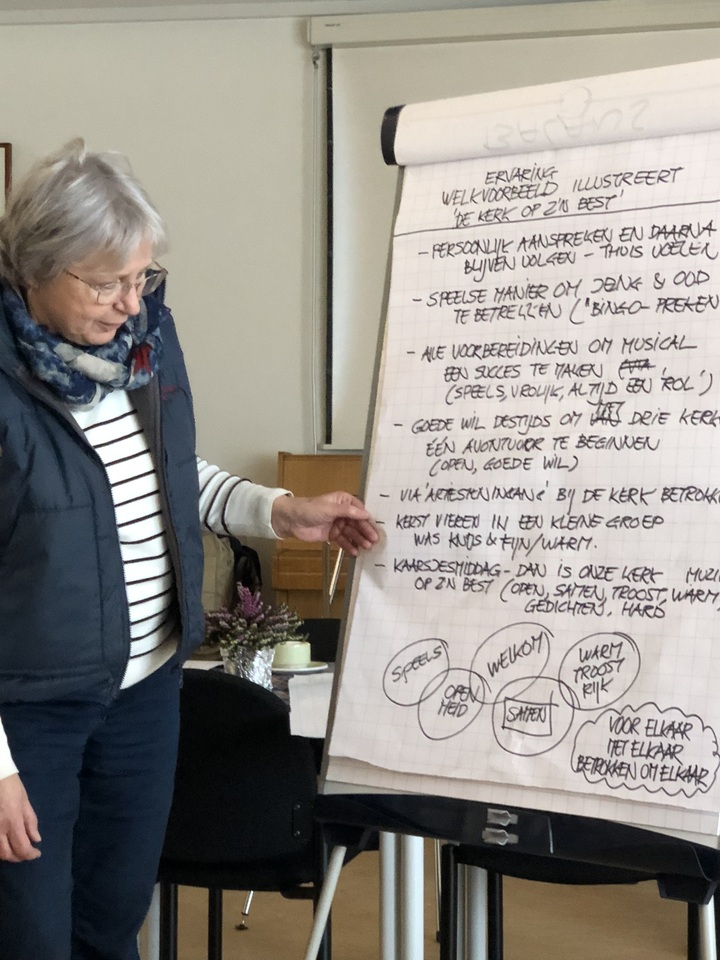 ERVARING
WELK VOORBEELD ILLUSTREERT
'DE KERK OP Z'N BEST'
- PERSOONLIJK AANSPREKEN EN DAARNA
BLIJVEN VOLGEN - THUIS VOELEN
- SPEELSE MANIER OM JONG & OUD
TE BETREKKEN ("BINGO-PREKEN
- ALLE VOORBEREIDINGEN OM MUSICAL
EEN SUCCES TE MAKEN
(SPEELS, VROLIJK, ALTIJD EEN 'ROL')
- GOEDE WIL DESTIJDS OM DRIE KERK
ÉÉN AVONTUUR TE BEGINNEN
(OPEN, GOEDE WIL)
- VIA BIJ DE KERK BETROKK
- KERST VIEREN IN EEN KLEINE GROEP
WAS KNUS & FIJN/WARM.
- KAARSJESMIDDAG - DAN IS ONZE KERK MUZI
OP Z'N BEST (OPEN, SAMEN, TROOST, WARM
GEDICHTEN, HARD
SPEELS
OPEN
HEID
WELKOM
SAMEN
WARM
TROOST
RIJK
VOOR ELKAAR
MET ELKAAR
BETROKKEN OM ELKAAR